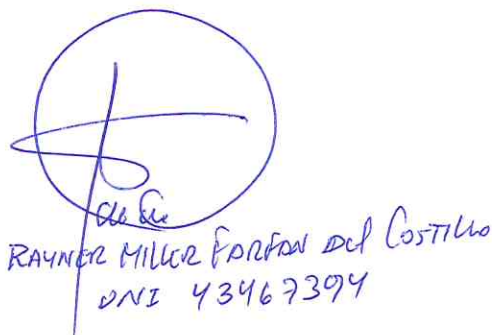 RAYNER MILLER FARFAN DEL COSTILLO
DNI 43467394